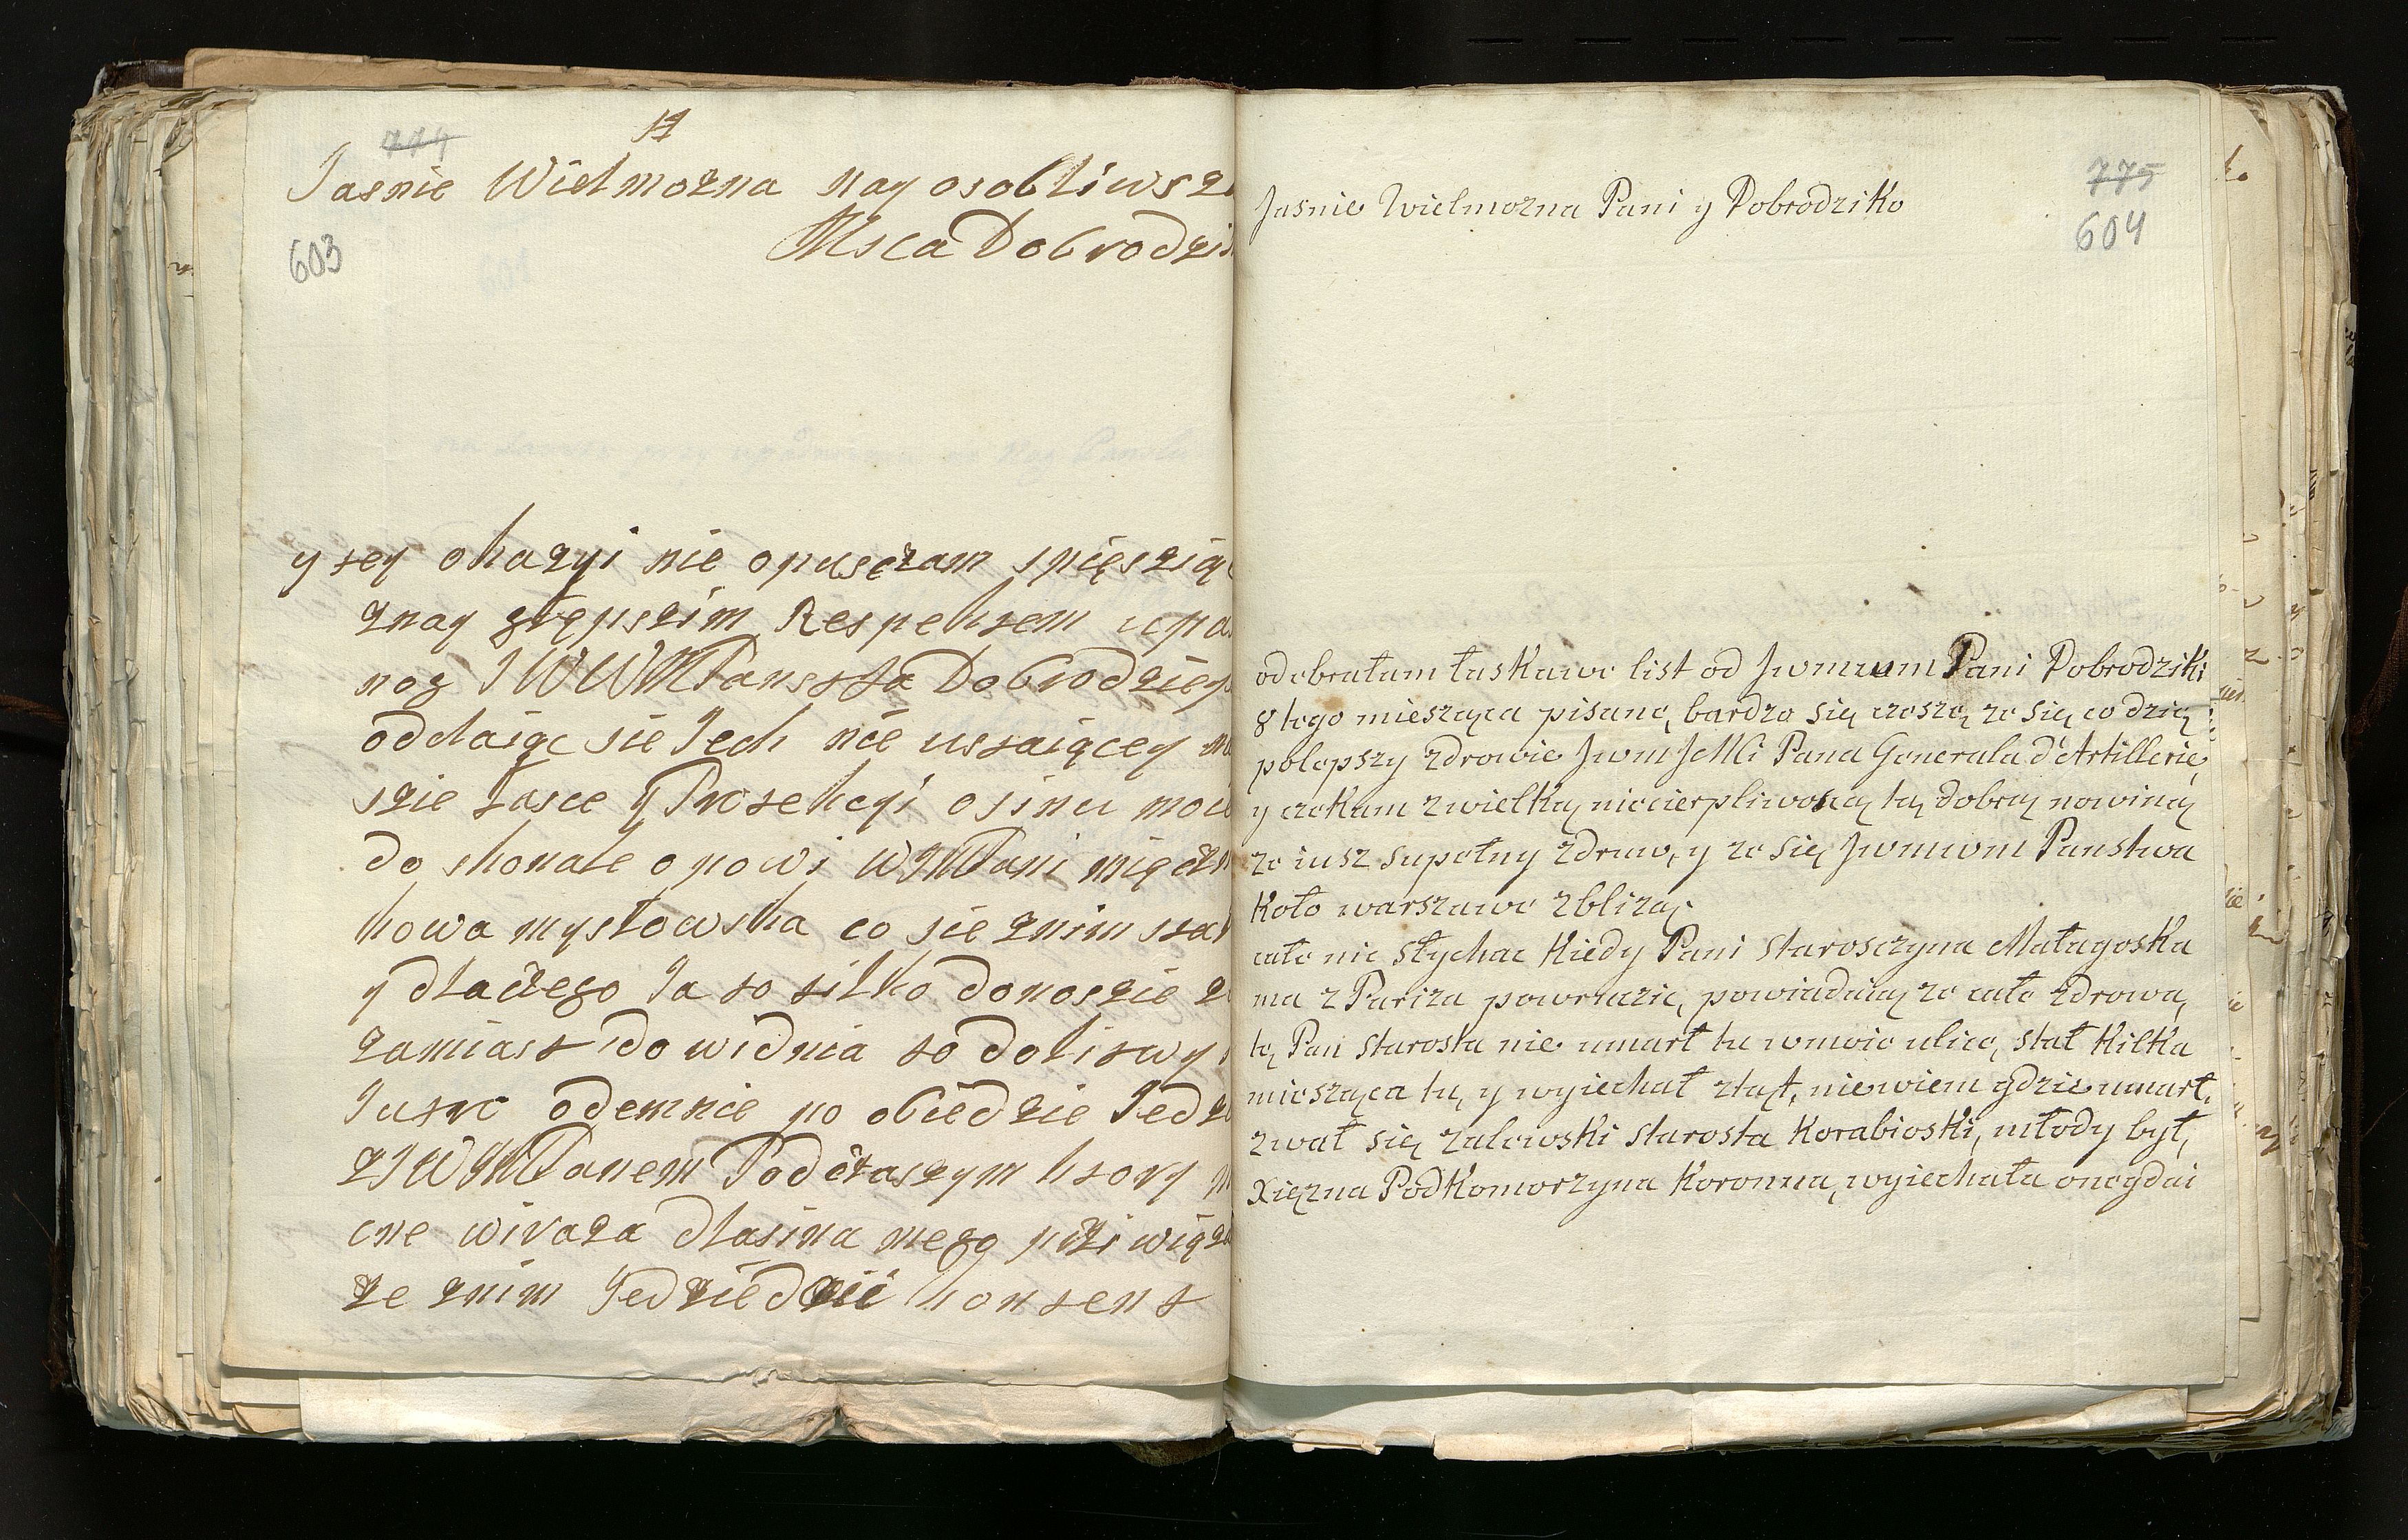 774
Jasnie Wielmozna nay osobliwsza
Msca Dobrodzi
603
y tey okazyi nie opusczam spięsziąc
znay głępszim Respektem upa
nog JWWMPanestfa Dobrodzieys
oddaiąc sie Jech nie ustaiącey
szie łasce y Protekcyi o sinu moi
do skonale opowi WJMPani
kowa mysłowska co sie znim
y dlaczego Ja to tilko donoszie
zamiast do widnia to do litwy
Jutro odemnie po obiedzie Jedz
zJWJMPanem Podczaszym ktory
cne wiraza dla sina mego prziwiąz
ze znim Jedzie konsent
775
604
Jasnie Wielmozna Pani y Dobrodziko
odebrałam łaskawe list od Jwmwm Pani Dobrodziki
8 tego miesząca pisane, bardzo się czeszę ze się co dzię
polepszy zdrowie Jwm JMCi Pana Generala d'Artillerie,
y czekam zwielką niecierpliwoscą tą dobrą nowiną
ze iusz supełny zdraw, y ze się Jwmwm Panstwa
koło warszawe zbliząią
całe nic słychac kiedy Pani Starosczyna Małagoska
ma z Pariza powrazic, powiadaią ze całe zdrowa,
tę Pan starosta nie umarł tu wmoie ulice, stał kilka
miesząca tu, y wyiechał ztąt, niewiem gdzie umarł,
zwał się zalewski starosta Korabioski, młody był,
Xięzna Podkomorzyna Koronna, wyiechała onegdai